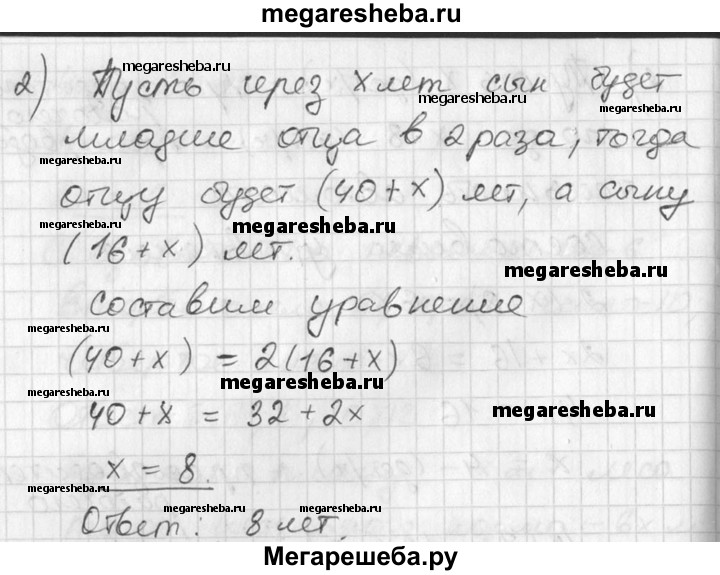 megaresheba.ru
2) Пусть через x лет сын будет
младше отца в 2 раза, тогда
отцу будет (40+x) лет, а сыну
(16+x) лет.
Составим уравнение
(40+x) = 2(16+x)
40+x = 32+2x
x = 8.
Ответ: 8 лет.
megaresheba.ru
megaresheba.ru
megaresheba.ru
megaresheba.ru
megaresheba.ru
megaresheba.ru
megaresheba.ru
megaresheba.ru
megaresheba.ru
megaresheba.ru
megaresheba.ru
megaresheba.ru
megaresheba.ru
Мегарешеба.ру